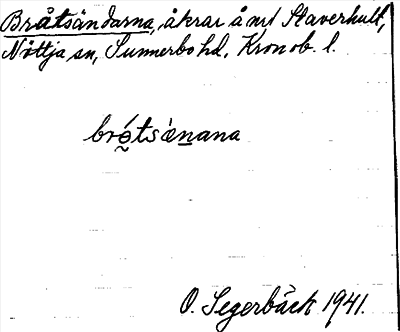 Bråtsändarna, åkrar å nr1 Staverhult,
Nöttja sn, Sunnerbo hd. Kronob. l.
brǫ́tsǽnana
O. Segerbäck 1941.